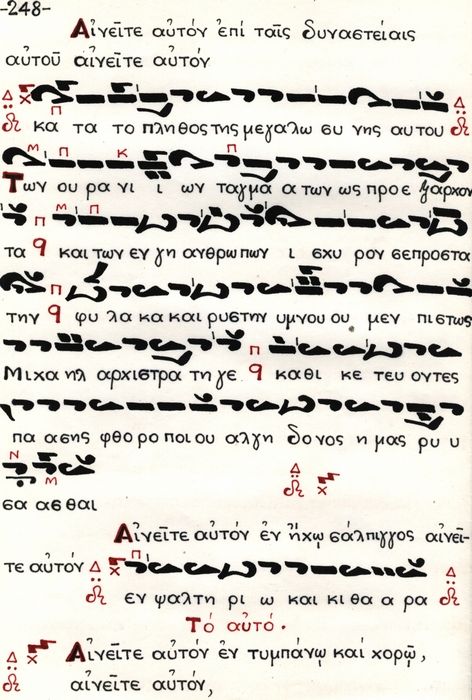 -248-
Αἰνεῖτε αὐτόν ἐπί ταῖς δυναστείαις
αὐτοῦ αἰνεῖτε αὐτόν
κα τα το πληθος της μεγαλω συ νης αυτου
Των ου ρα νι ι ων ταγμα α των ως προε ξαρχον
τα και των εν γη ανθρωπων ι σχυ ρον σε προστα
την φυ λα κα και ρυστην υμνου ου μεν πιστως
Μιχα ηλ αρχιστρα τη γε καθι κε τευ οντες
πα ασης φθορο ποι ου αλγη δονος η μας ρυ υ
σα ασθαι
Αἰνεῖτε αὐτόν ἐν ἤχῳ σάλπιγγος αἰνεῖ-
τε αὐτόν
εν ψαλτη ρι ω και κι θα α ρα
Τό αὐτό.
Αἰνεῖτε αὐτόν ἐν τυμπάνῳ καί χορῷ,
αἰνεῖτε αὐτόν,